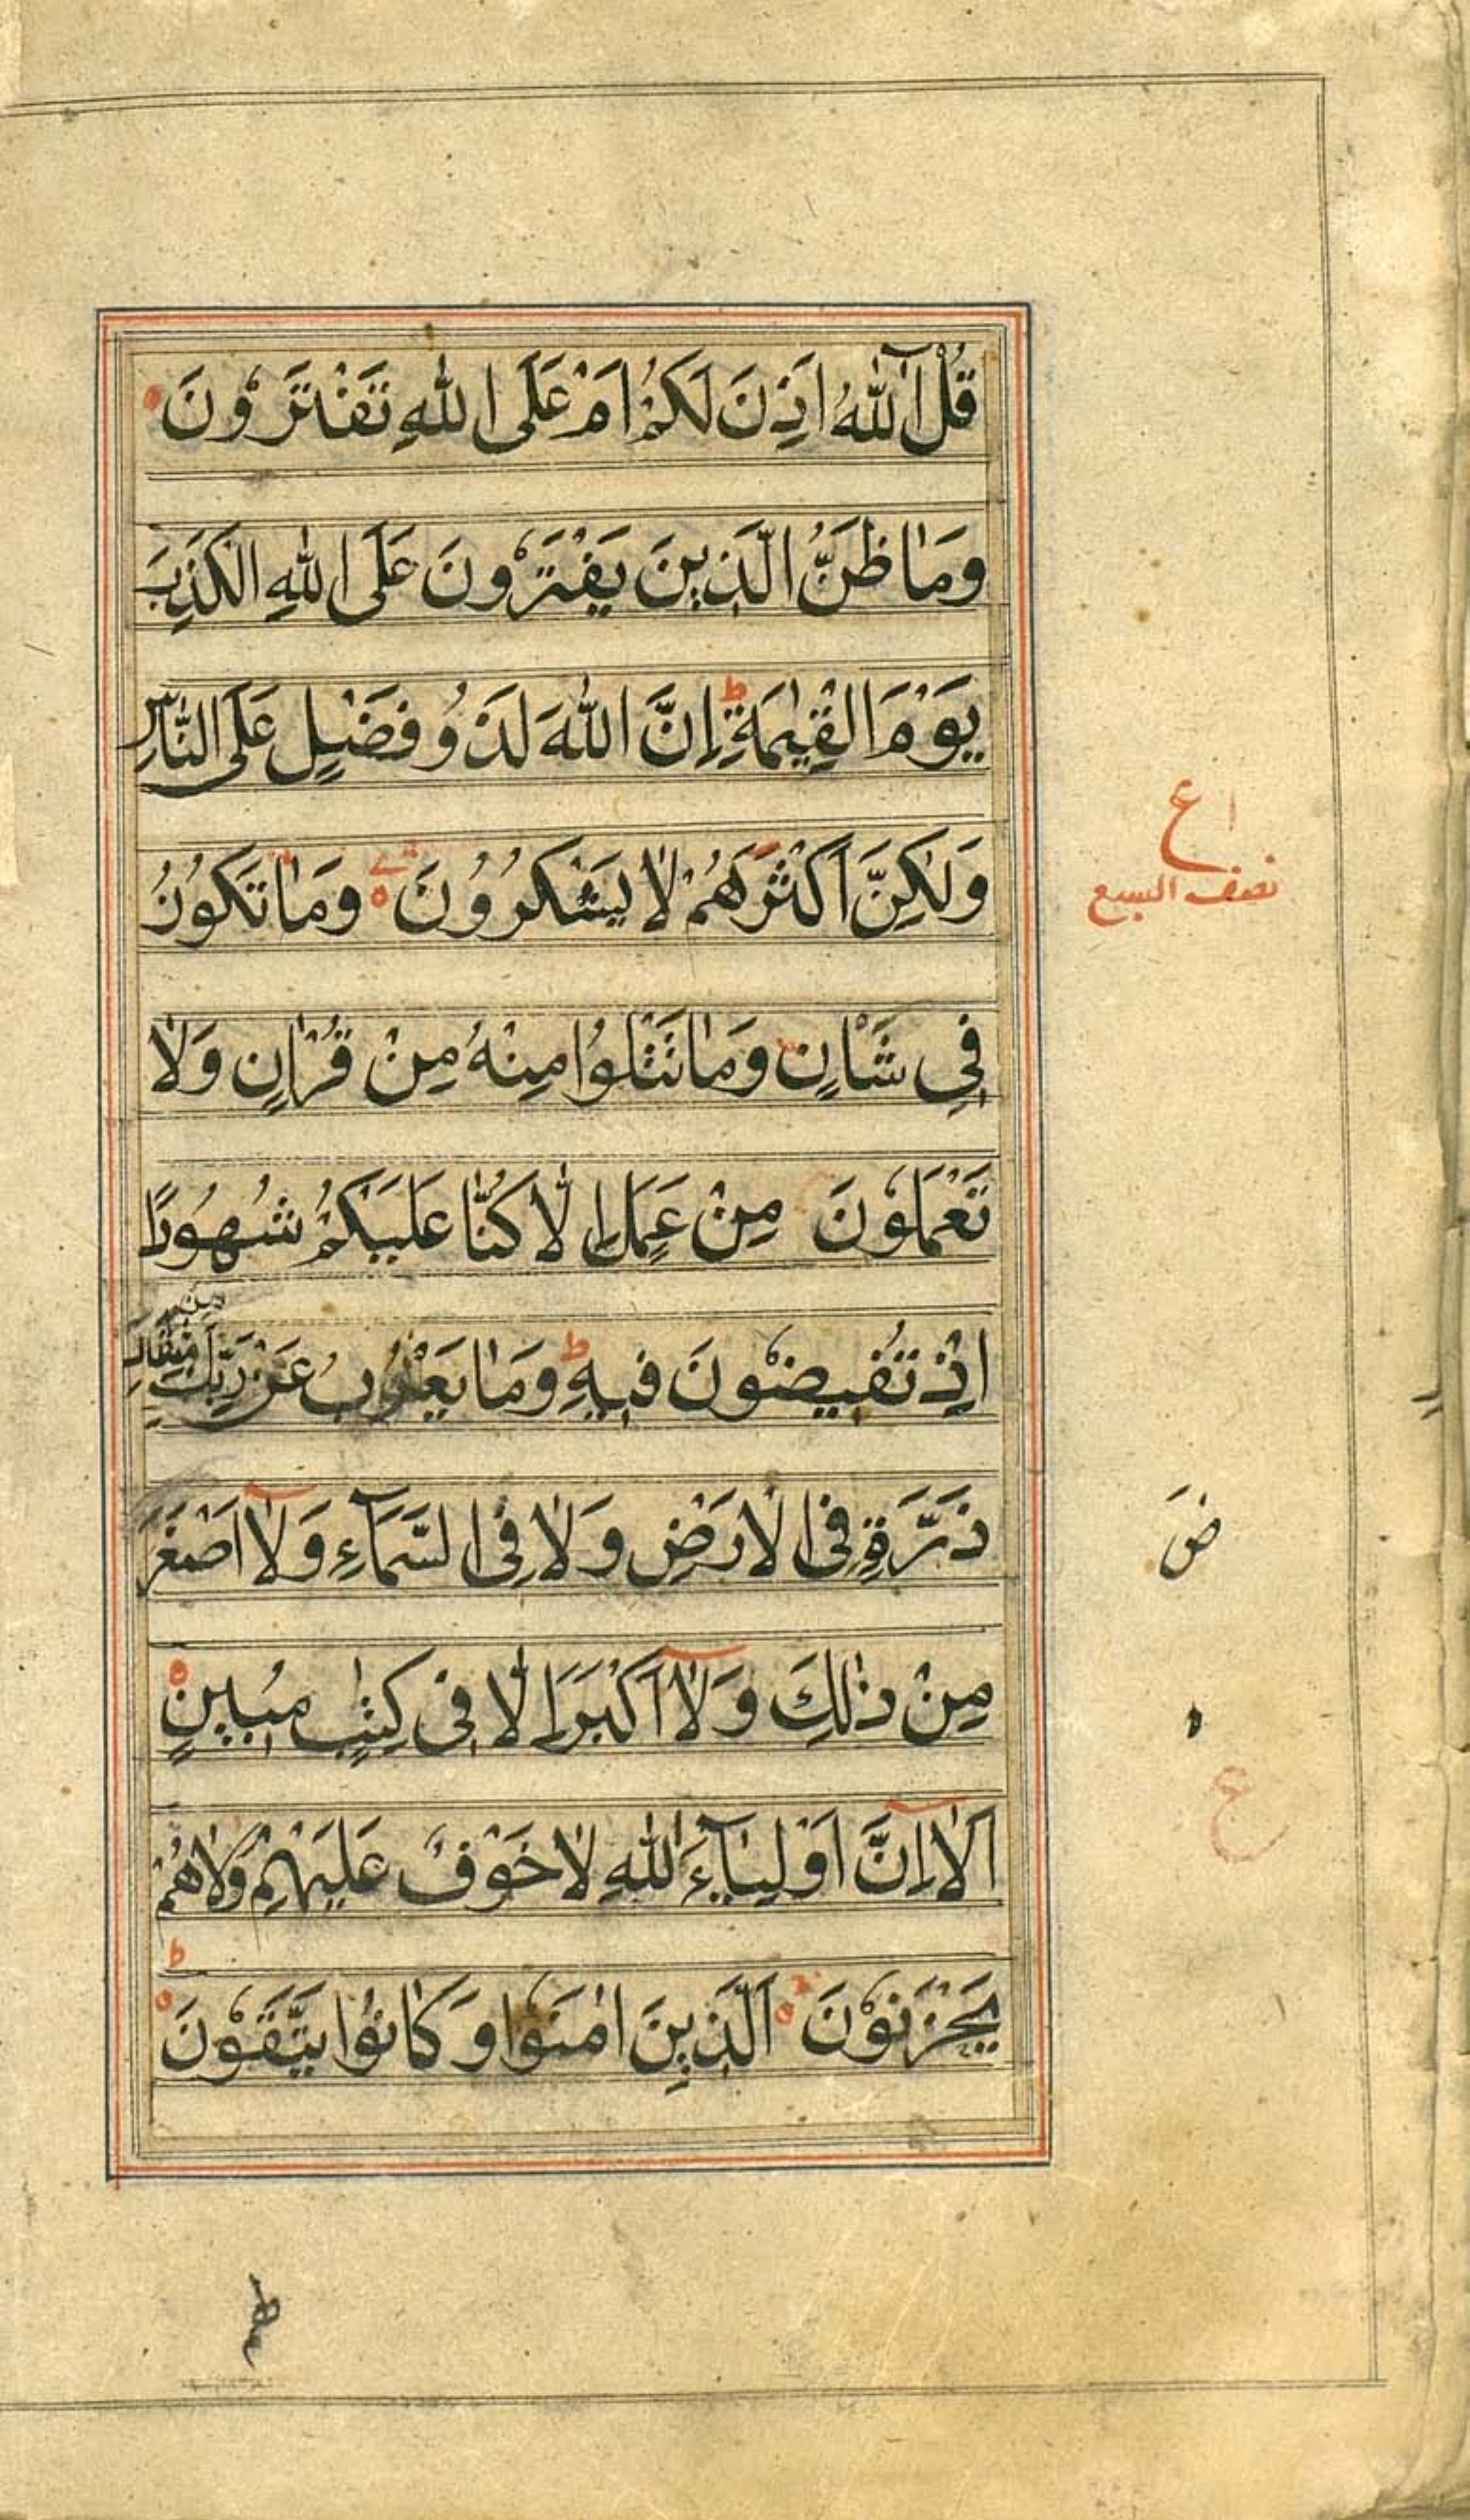 قُلْ آٰللّٰهُ اَذِنَ لَكُمْ اَمْ عَلَى اللّٰهِ تَفْتَرُوْنَ
وَمَا ظَنُّ الَّذِينَ يَفْتَرُوْنَ عَلَى اللّٰهِ الْكَذِبَ
يَوْمَ الْقِيٰمَةِ ط اِنَّ اللّٰهَ لَذُوْ فَضْلٍ عَلَى النَّاسِ
وَلٰكِنَّ اَكْثَرَهُمْ لَا يَشْكُرُوْنَ وَمَا تَكُوْنُ
ع
نصف السبع
فِي شَاْنٍ وَمَا تَتْلُوْا مِنْهُ مِنْ قُرْاٰنٍ وَلَا
تَعْمَلُوْنَ مِنْ عَمَلٍ اِلَّا كُنَّا عَلَيْكُمْ شُهُوْدًا
اِذْ تُفِيضُوْنَ فِيهِ ط وَمَا يَعْزُبُ عَنْ رَبِّكَ مِنْ مِثْقَالِ
ذَرَّةٍ فِى الْاَرْضِ وَلَا فِى السَّمَآءِ وَلَآ اَصْغَرَ
ض
مِنْ ذٰلِكَ وَلَآ اَكْبَرَ اِلَّا فِى كِتٰبٍ مُبِينٍ
ع
اَلَآ اِنَّ اَوْلِيَآءَ اللّٰهِ لَا خَوْفٌ عَلَيْهِمْ وَلَا هُمْ
يَحْزَنُوْنَ اَلَّذِينَ اٰمَنُوْا وَكَانُوْا يَتَّقُوْنَ ط